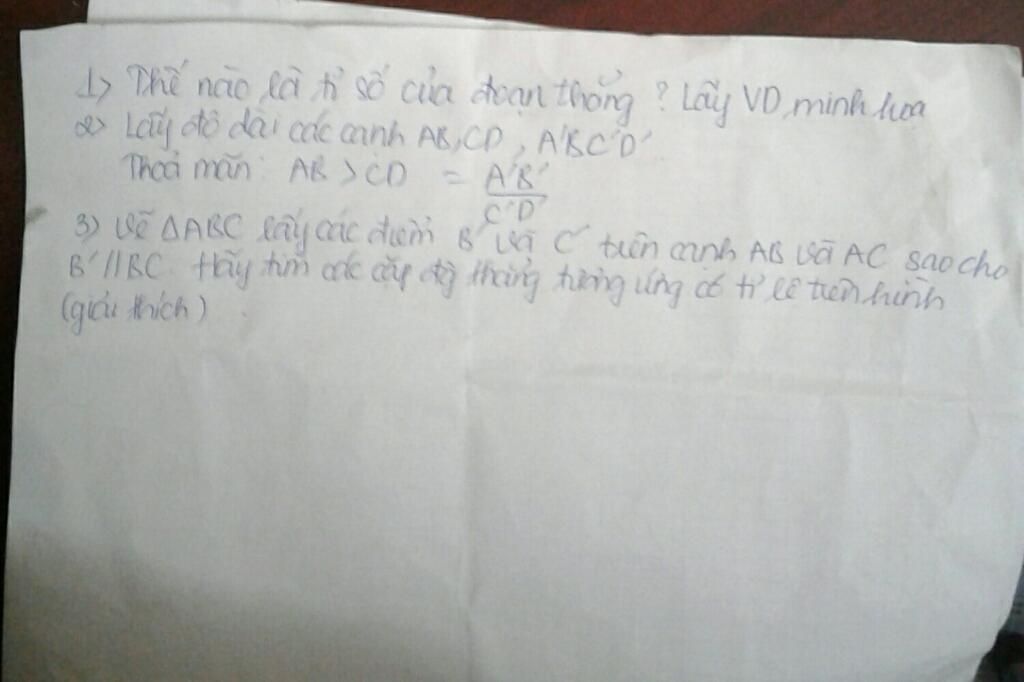 1) Thế nào là tỉ số của đoạn thẳng ? Lấy VD minh hoạ
2) Lấy độ dài các cạnh AB, CD, A'B'C'D'
Thoả mãn: AB > CD = A'B' / C'D'
3) Vẽ ΔABC lấy các điểm B' và C' trên cạnh AB và AC sao cho
B' // BC. Hãy tìm các cặp độ thẳng tương ứng có tỉ lệ trên hình
(giải thích).